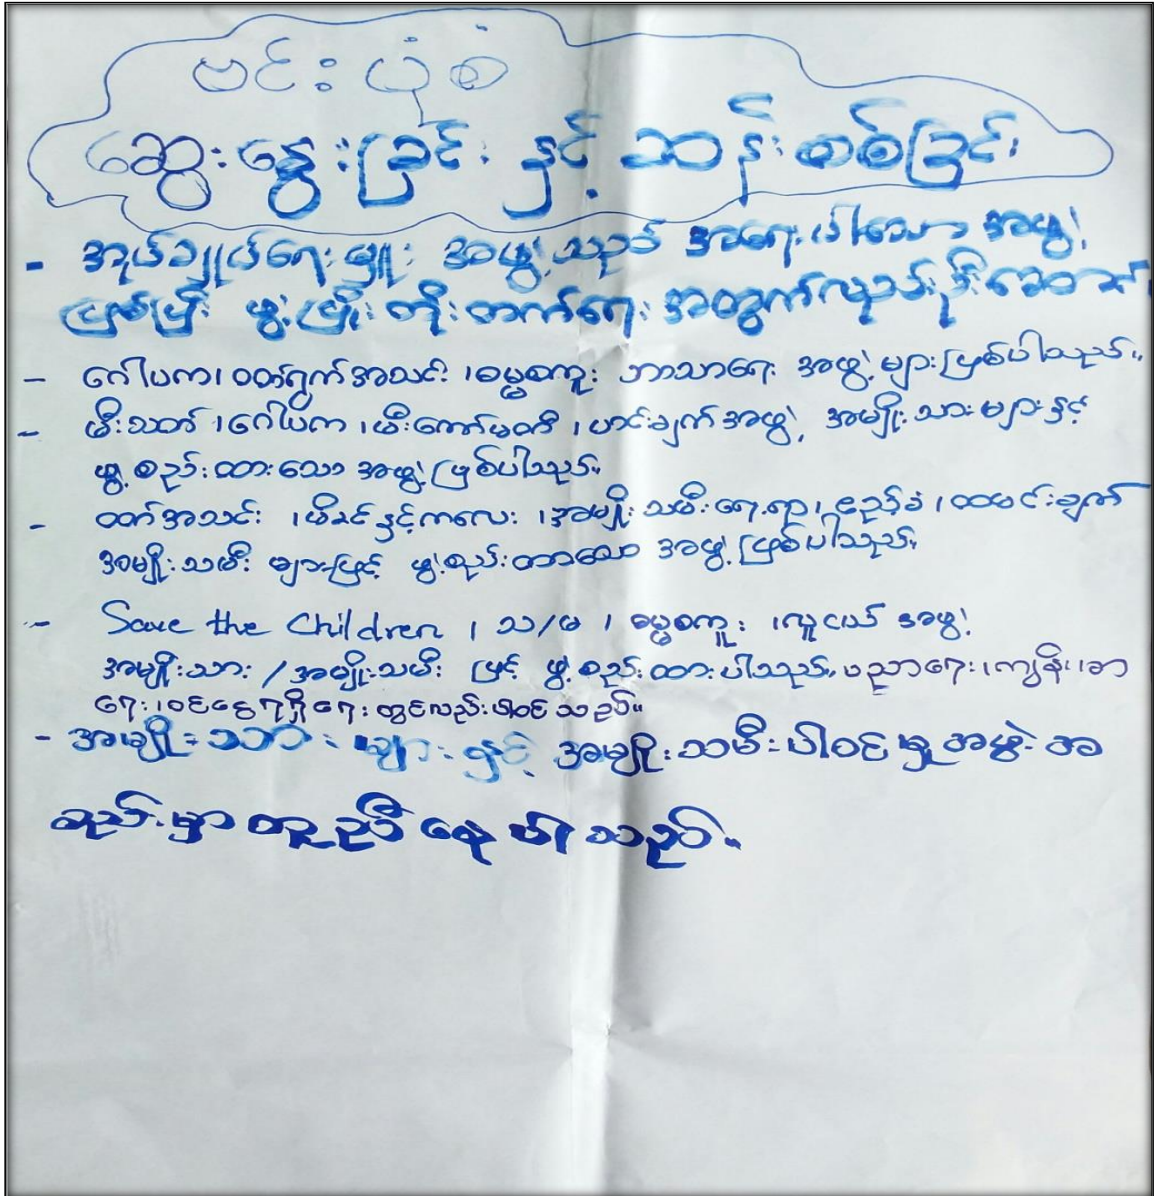 ဗင်းပုံစံ
ဆွေးနွေးခြင်း နှင့် ဆန်းစစ်ခြင်း
- အုပ်ချုပ်ရေးမှူး အဖွဲ့သည် အရေးပါသော အဖွဲ့
ဖြစ်ပြီး ဖွံ့ဖြိုး တိုးတက်ရေး အတွက်လည်း
- ဂေါပက၊ ဝတ်ရွတ်အသင်း ၊ ဓမ္မစကူး ဘာသာရေး အဖွဲ့ များဖြစ်ပါသည်။
- မီးသတ် ၊ ဂေါပက ၊ မီးကော်မတီ ၊ ဟင်းချက်အဖွဲ့ အမျိုးသားများနှင့်
ဖွဲ့စည်းထားသော အဖွဲ့ဖြစ်ပါသည်။
- ၊ မိခင်နှင့်ကလေး ၊ အမျိုးသမီးရေးရာ၊ ဧည့်ခံ ၊ ထမင်းချက်
အမျိုးသမီး များဖြင့် ဖွဲ့စည်းထားသော အဖွဲ့ဖြစ်ပါသည်။
- Save the Children ၊ သ/မ ၊ ဓမ္မစကူး ၊ လူငယ် အဖွဲ့
အမျိုးသား / အမျိုးသမီး ဖြင့် ဖွဲ့စည်းထားပါသည်။ ပညာရေး၊ ကျန်းမာ
ရေး၊ ဝင်ငွေရရှိရေးတွင်လည်းပါဝင်သည်။
- အမျိုးသား များနှင့် အမျိုးသမီးပါဝင်မှု အဖွဲ့အ
စည်းမှာ တူညီနေပါသည်။